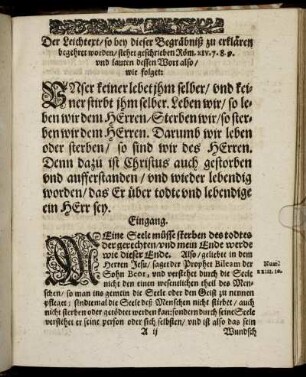 Der Leichtext/ so bey dieser Begräbniß zu erklären
begehret worden/ stehet geschrieben Röm. XIV. 7. 8. 9.
und lauten dessen Wort also/
wie folget:
UNser keiner lebet jhm selber/ und kei-
ner stirbt jhm selber. Leben wir/ so le-
ben wir dem HErren/ Sterben wir/ so ster-
ben wir dem HErren. Darumb wir leben
oder sterben/ so sind wir des HErren.
Denn dazu ist Christus auch gestorben
und aufferstanden/ und wieder lebendig
worden/ das Er über todte und lebendige
ein HErr sey.
Eingang.
MEine Seele müsse sterben des todtes
der gerechten/ und mein Ende werde
wie dieser Ende. Also/ geliebte in dem
Herren Jesu/ saget der Prophet Bileam der
Sohn Beor, und verstehet durch die Seele
nicht den einen wesentlichen theil des Men-
schen/ so man ins gemein die Seele oder den Geist zu nennen
pfleget; sindemal die Seele deß Menschen nicht stirbet/ auch
nicht sterben oder getödtet werden kan: sondern durch seine Seele
verstehet er seine person oder sich selbsten/ und ist also das sein
Num:
XXIII. 10.
A ij
Wundsch